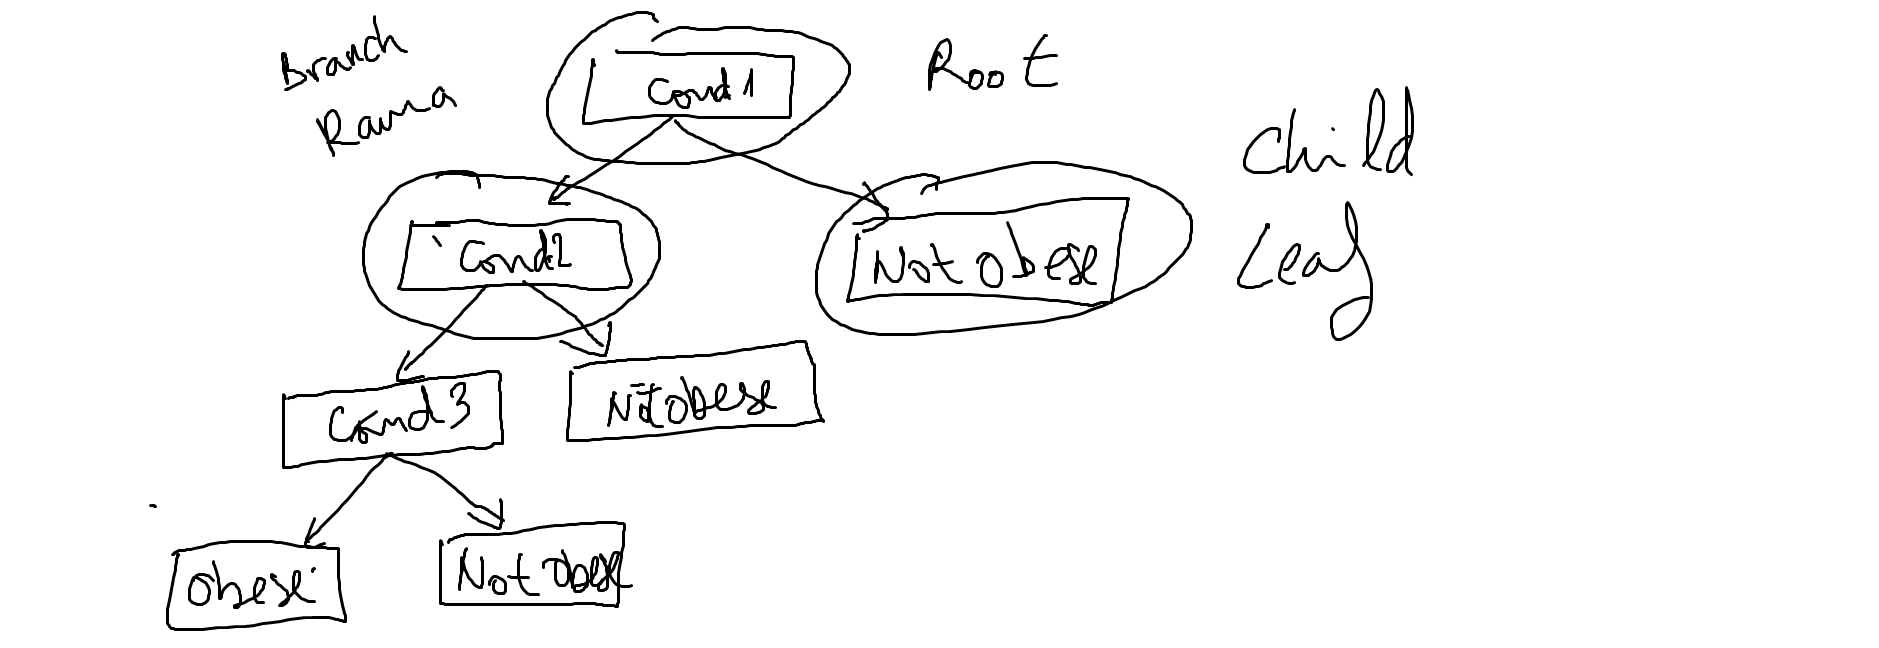 Branch
Rama
Cond1
Root
Child
Leaf
Cond2
Not Obese
Cond3
Not Obese
Obese
Not Obese